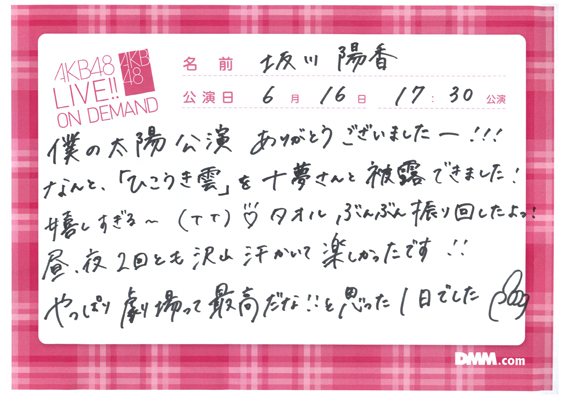 AKB48
LIVE!!
ON DEMAND
AKB
48
名前 坂川 陽香
公演日 6月 16日 17:30 公演
僕の太陽公演 ありがとうございましたー!!!
なんと、「ひこうき雲」を十夢さんと披露できました!
嬉しすぎる〜 (TT)♡ タオルぶんぶん振り回したよっ!
昼、夜2回とも沢山汗かいて楽しかったです!!
やっぱり劇場って最高だな!!と思った1日でした
DMM.com